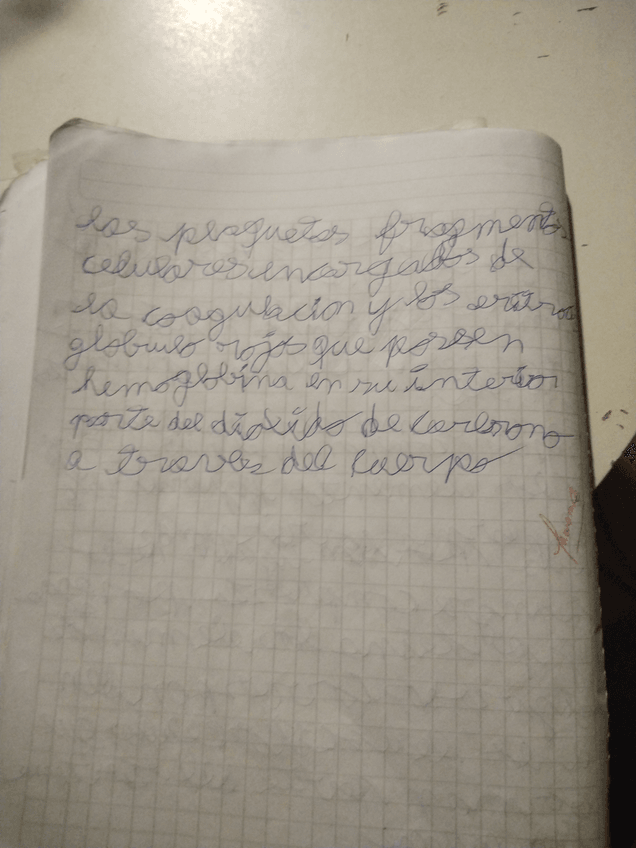 las plaquetas fragmentos
celulares encargados de
la coagulacion y los eritro
globulo rojos que poseen
hemoglobina en su interior
parte del dioxido de carbono
a traves del cuerpo